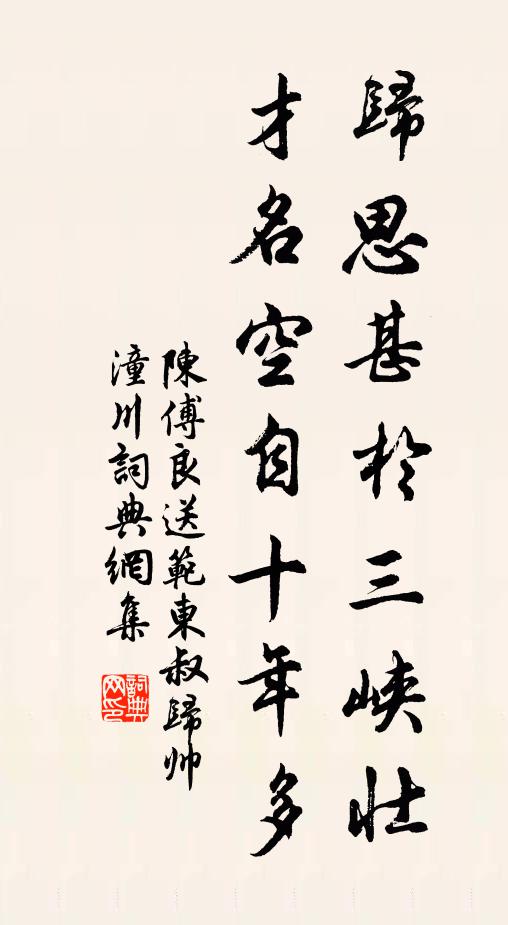 歸思甚於三峽壯
才名空自十年多
陳傅良送範東叔歸帅
潼川詞典網集
詞典
网印